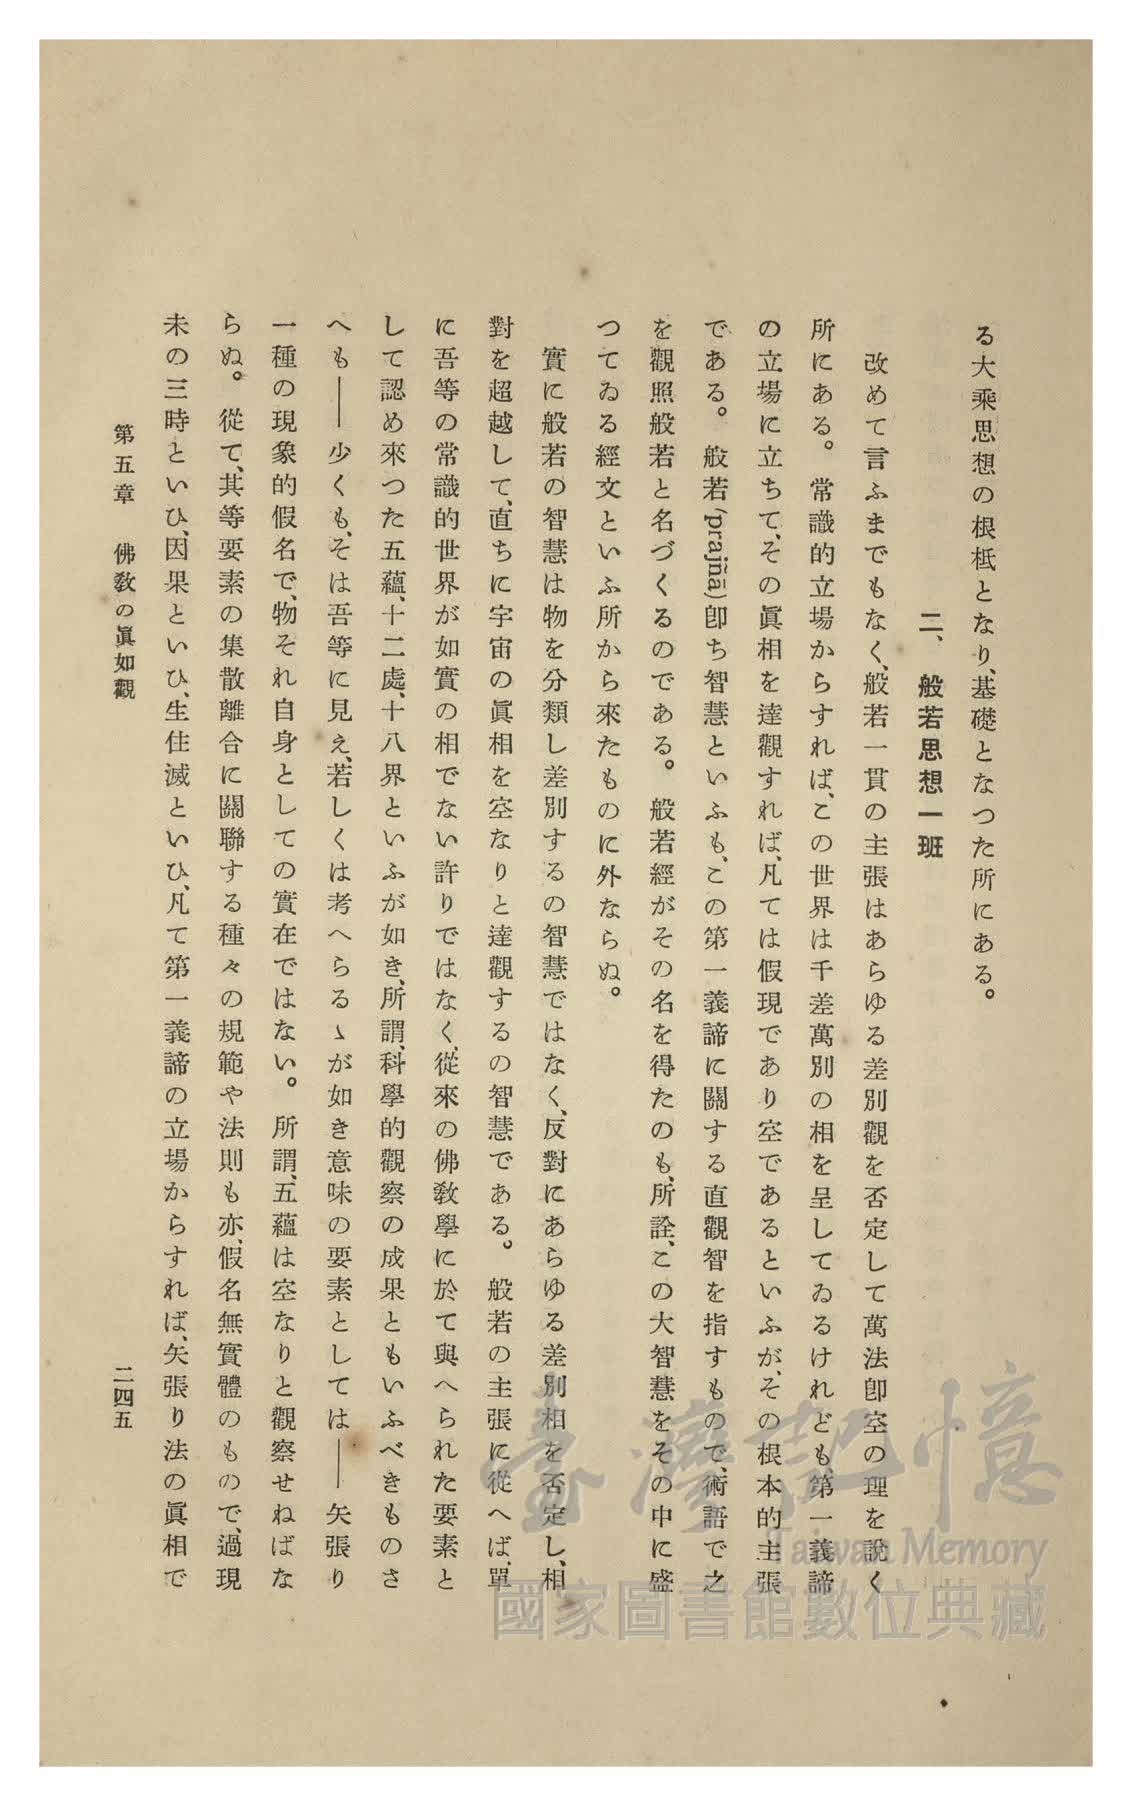 る大乘思想の根柢となり、基礎となつた所にある。
二、般若思想一班
改めて言ふまでもなく、般若一貫の主張はあらゆる差別觀を否定して萬法卽空の理を說く
所にある。常識的立場からすれば、この世界は千差萬別の相を呈してゐるけれども、第一義諦
の立場に立ちて、その眞相を達觀すれば、凡ては假現であり空であるといふが、その根本的主張
である。般若(prajñā)卽ち智慧といふも、この第一義諦に關する直觀智を指すもので、術語で之
を觀照般若と名づくるのである。般若經がその名を得たのも、所詮、この大智慧をその中に盛
つてゐる經文といふ所から來たものに外ならぬ。
實に般若の智慧は物を分類し差別するの智慧ではなく、反對にあらゆる差別相を否定し、相
對を超越して、直ちに宇宙の眞相を空なりと達觀するの智慧である。般若の主張に從へば、單
に吾等の常識的世界が如實の相でない許りではなく、從來の佛敎學に於て與へられた要素と
して認め來つた五蘊、十二處、十八界といふが如き、所謂、科學的觀察の成果ともいふべきものさ
へも――少くも、そは吾等に見え、若しくは考へらるゝが如き意味の要素としては――矢張り
一種の現象的假名で、物それ自身としての實在ではない。所謂、五蘊は空なりと觀察せねばな
らぬ。從て、其等要素の集散離合に關聯する種々の規範や法則も亦、假名無實體のもので、過現
未の三時といひ、因果といひ、生住滅といひ、凡て第一義諦の立場からすれば、矢張り法の眞相で
第五章 佛敎の眞如觀
二四五
臺灣記憶
Taiwan Memory
國家圖書館數位典藏